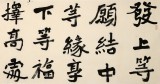 發上等
願結中
等緣享
下等福
擇高處